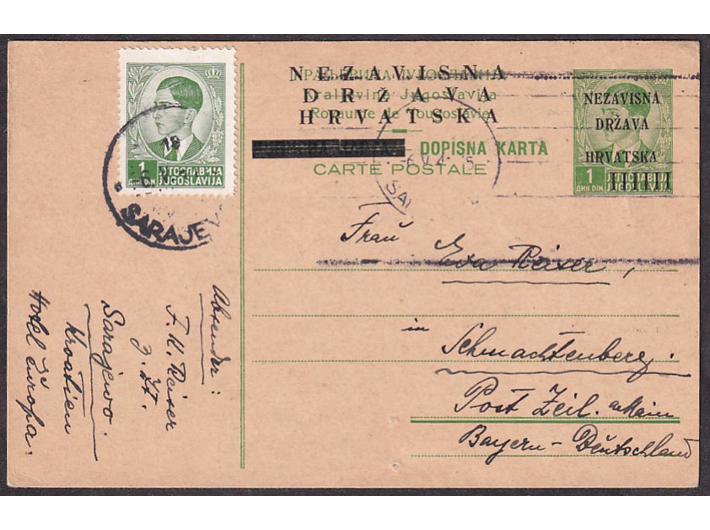 NEZAVISNA
DRŽAVA
HRVATSKA
Kraljevina Jugoslavija
Royaume de Yougoslavie
DOPISNA KARTA
CARTE POSTALE
NEZAVISNA
DRŽAVA
HRVATSKA
1
ДИН DIN
1
ДИН DIN
ЈУГОСЛАВИЈА
JUGOSLAVIJA
SARAJEV
Frau
Eva Reiser,
in
Schmachtenberg.
Post Zeil. a Main
Bayern-Deutschland
Absender:
F. M. Reiser
z. Zt.
Sarajewo.
Kroatien
Hotel Európa.